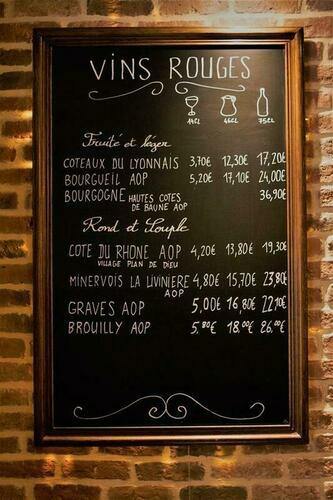 VINS ROUGES
14CL 46CL 75CL
Fruité et léger
COTEAUX DU LYONNAIS 3,70€ 12,30€ 17,20€
BOURGUEIL AOP 5,20€ 17,10€ 24,00€
BOURGOGNE HAUTES COTES 36,90€
DE BAUNE AOP
Rond et Souple
COTE DU RHONE AOP 4,20€ 13,80€ 19,30€
VILLAGE PLAN DE DIEU
MINERVOIS LA LIVINIERE 4,80€ 15,70€ 23,80€
AOP
GRAVES AOP 5,00€ 16,80€ 22,10€
BROUILLY AOP 5,80€ 18,00€ 26,00€